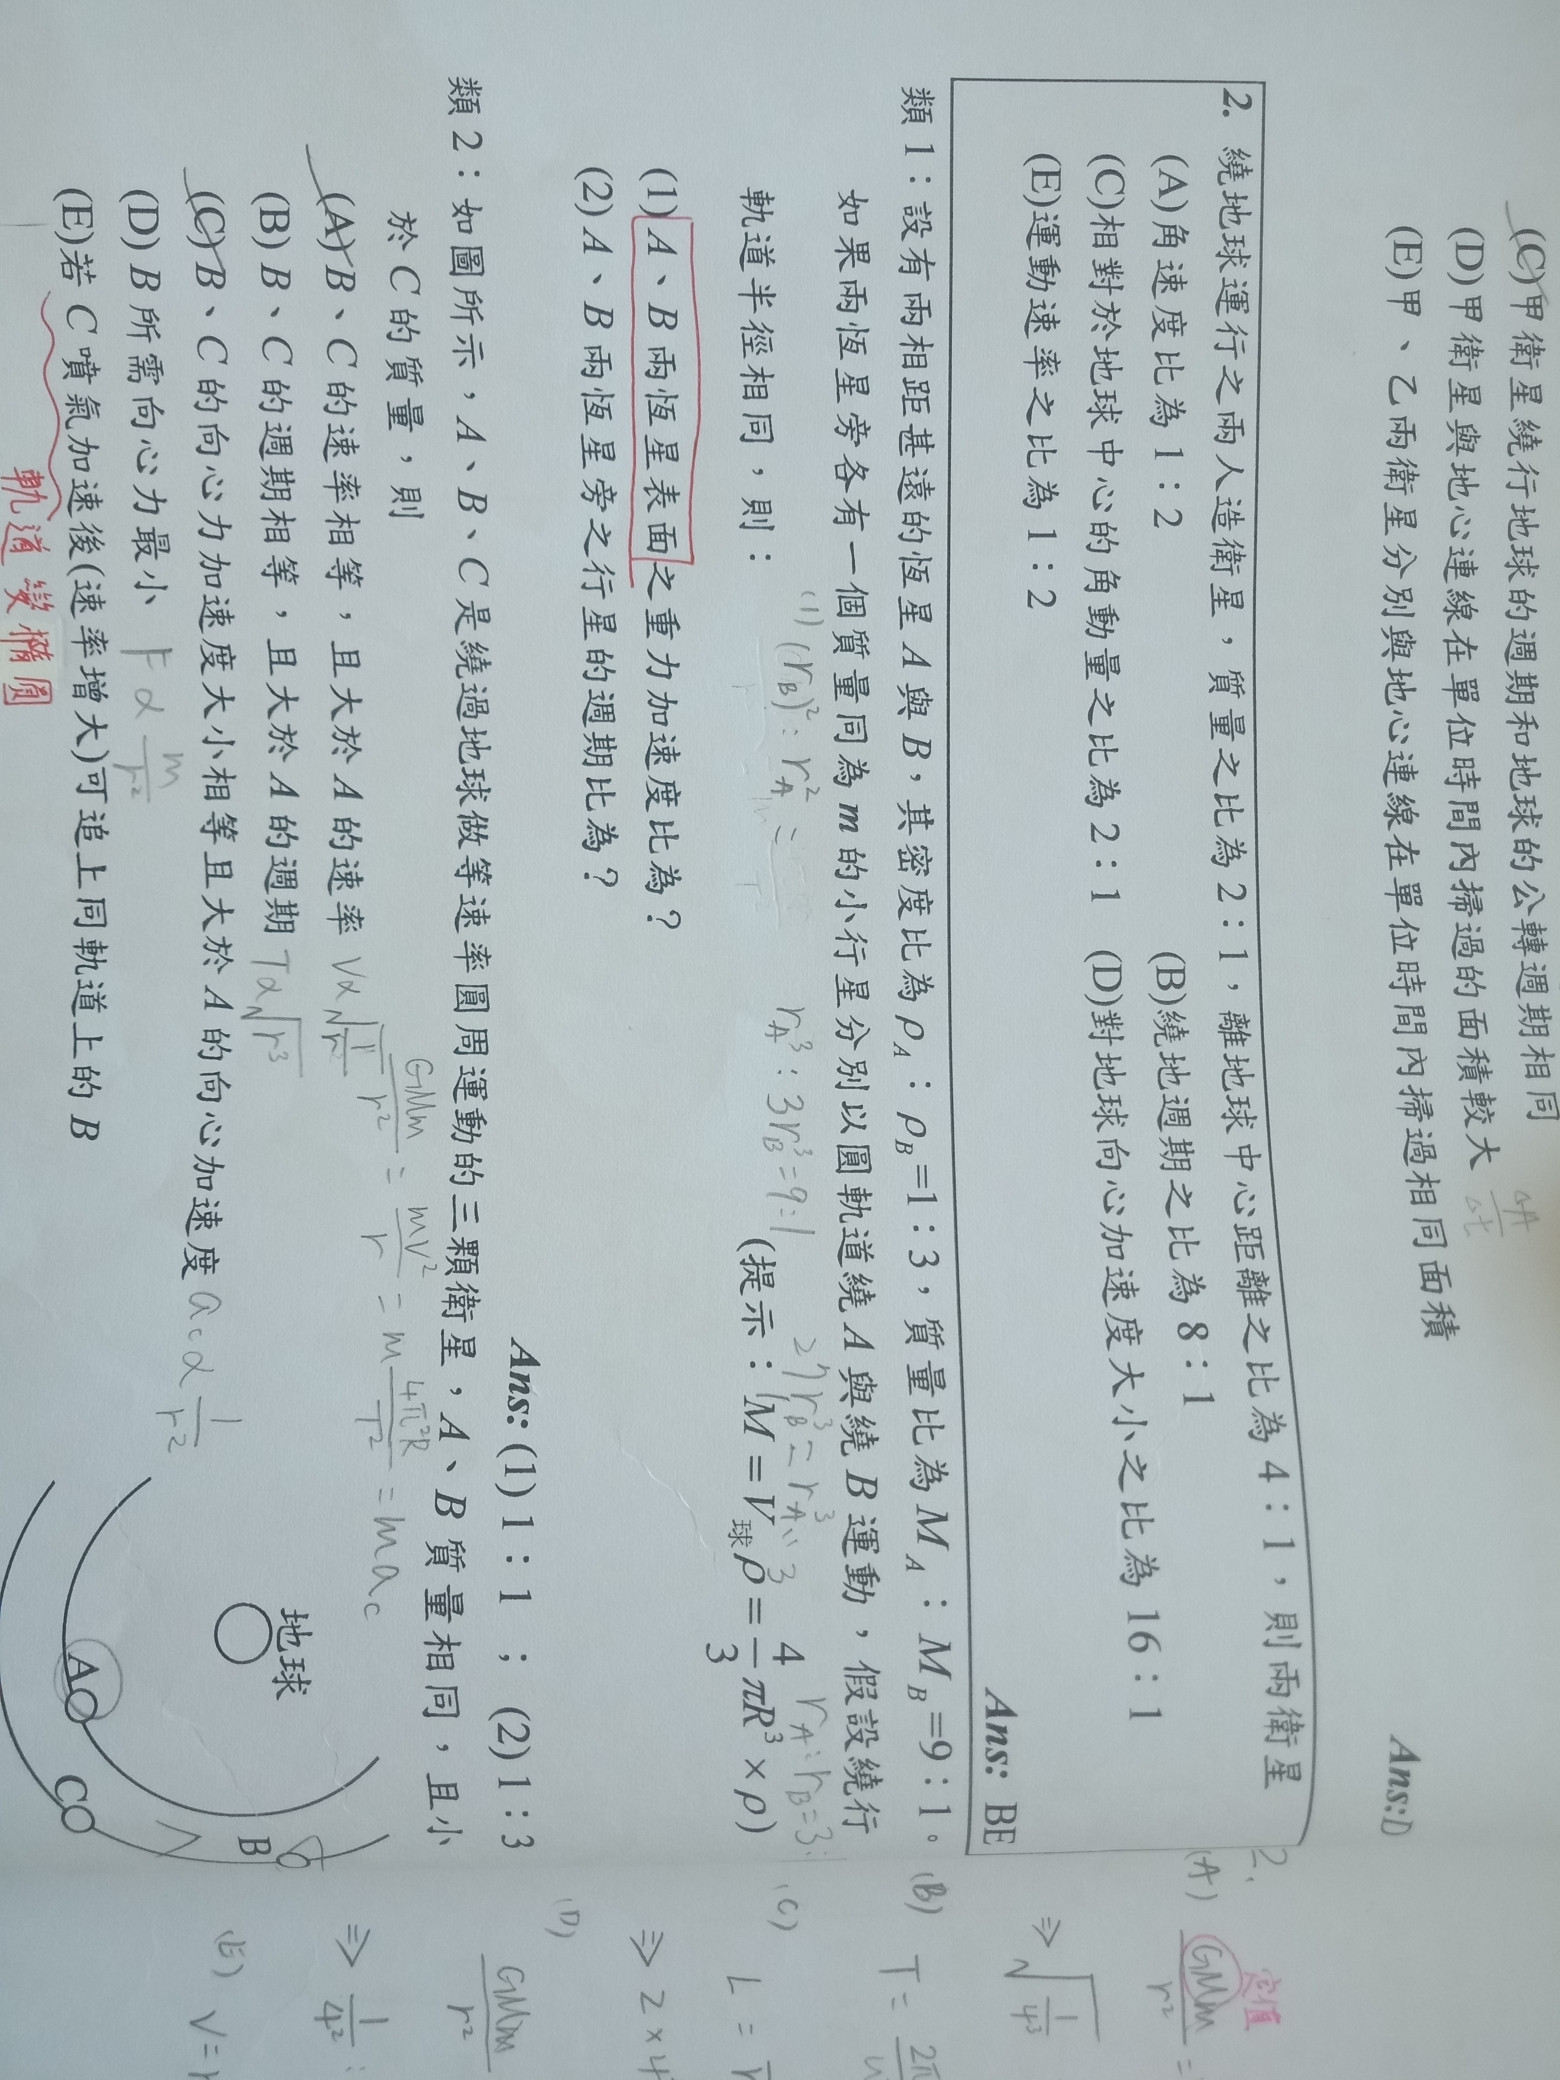 (C)甲衛星繞行地球的週期和地球的公轉週期相同
(D)甲衛星與地心連線在單位時間內掃過的面積較大 ΔA/Δt
(E)甲、乙兩衛星分別與地心連線在單位時間內掃過相同面積
Ans:D
2. 繞地球運行之兩人造衛星，質量之比為 2：1，離地球中心距離之比為 4：1，則兩衛星
(A)角速度比為 1：2 (B)繞地週期之比為 8：1
(C)相對於地球中心的角動量之比為 2：1 (D)對地球向心加速度大小之比為 16：1
(E)運動速率之比為 1：2
Ans: BE
類 1：設有兩相距甚遠的恆星 A 與 B，其密度比為 ρA：ρB=1：3，質量比為 MA：MB=9：1。
如果兩恆星旁各有一個質量同為 m 的小行星分別以圓軌道繞 A 與繞 B 運動，假設繞行
軌道半徑相同，則：
(1) (rB)²：rA² =
rA³：3rB³=9:1
27rB³=rA³
rA:rB=3:
(提示：M=V球ρ=4/3 πR³×ρ)
(1) A、B 兩恆星表面之重力加速度比為？
(2) A、B 兩恆星旁之行星的週期比為？
Ans: (1) 1：1 ； (2) 1：3
類 2：如圖所示，A、B、C 是繞過地球做等速率圓周運動的三顆衛星，A、B 質量相同，且小
於 C 的質量，則
GMm/r² = mV²/r = m 4π²R/T² = mac
(A) B、C 的速率相等，且大於 A 的速率
(B) B、C 的週期相等，且大於 A 的週期 Tα√r³
(C) B、C 的向心力加速度大小相等且大於 A 的向心加速度 acα 1/r²
(D) B 所需向心力最小 Fα m/r²
(E)若 C 噴氣加速後(速率增大)可追上同軌道上的 B
軌道變橢圓
地球
A
C
B
2.
(A) GMm/r² =
定值
⇒ √1/4³
(B) T = 2π
(C) L = r
⇒ 2×4
(D) GMm/r²
⇒ 1/4² :
(E) V=r